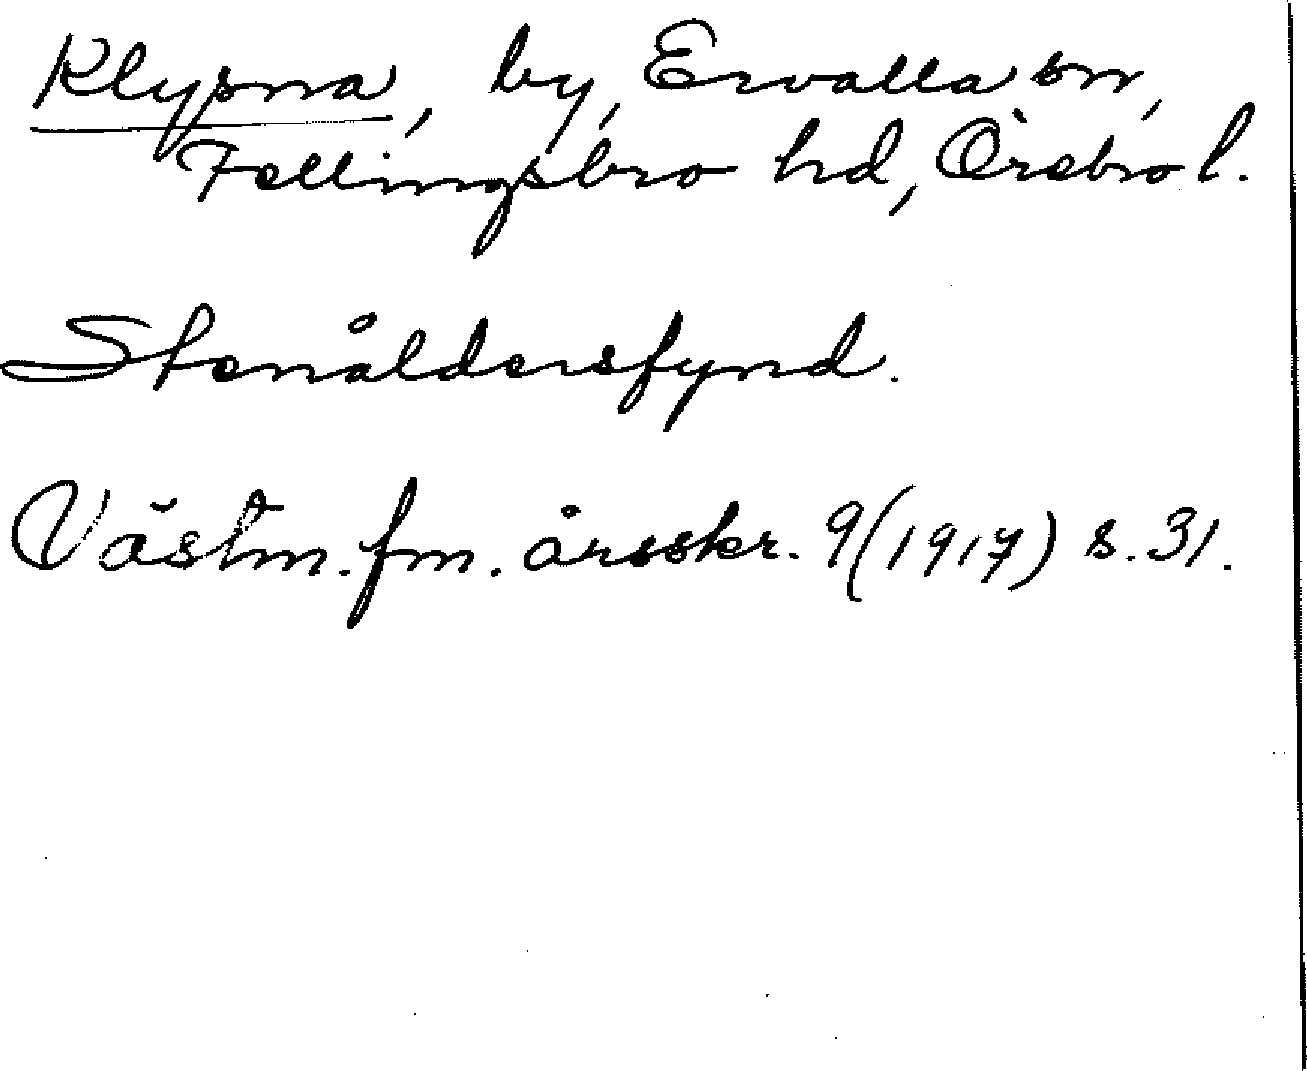 Klysna, by, Ervalla sn,
Fellingsbro hd, Örebro l.
Stenåldersfynd.
Västm. fm. årsskr. 9 (1917) s. 31.